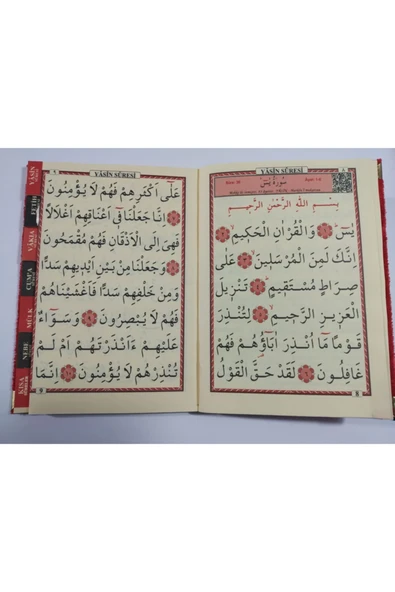 YÂSİN SÛRESİ
سُورَةُ يٰسٓ
بِسْمِ اللّٰهِ الرَّحْمٰنِ الرَّحِيمِ
يٰسٓ وَالْقُرْاٰنِ الْحَكِيمِ
اِنَّكَ لَمِنَ الْمُرْسَلِينَ عَلٰى
صِرَاطٍ مُسْتَقِيمٍ تَنْزِيلَ
الْعَزِيزِ الرَّحِيمِ لِتُنْذِرَ
قَوْمًا مَٓا اُنْذِرَ اٰبَٓاؤُ۬هُمْ فَهُمْ
غَافِلُونَ لَقَدْ حَقَّ الْقَوْلُ
YÂSİN SÛRESİ
عَلٰٓى اَكْثَرِهِمْ فَهُمْ لَا يُؤْمِنُونَ
اِنَّا جَعَلْنَا ف۪ٓى اَعْنَاقِهِمْ اَغْلَالًا
فَهِىَ اِلَى الْاَذْقَانِ فَهُمْ مُقْمَحُونَ
وَجَعَلْنَا مِنْ بَيْنِ اَيْدِيهِمْ سَدًّا
وَمِنْ خَلْفِهِمْ سَدًّا فَاَغْشَيْنَاهُمْ
فَهُمْ لَا يُبْصِرُونَ وَسَوَٓاءٌ
عَلَيْهِمْ ءَاَنْذَرْتَهُمْ اَمْ لَمْ
تُنْذِرْهُمْ لَا يُؤْمِنُونَ اِنَّمَا
YÂSİN
FETİH
VÂKIA
CUM'A
MÜLK
NEBE
KISA